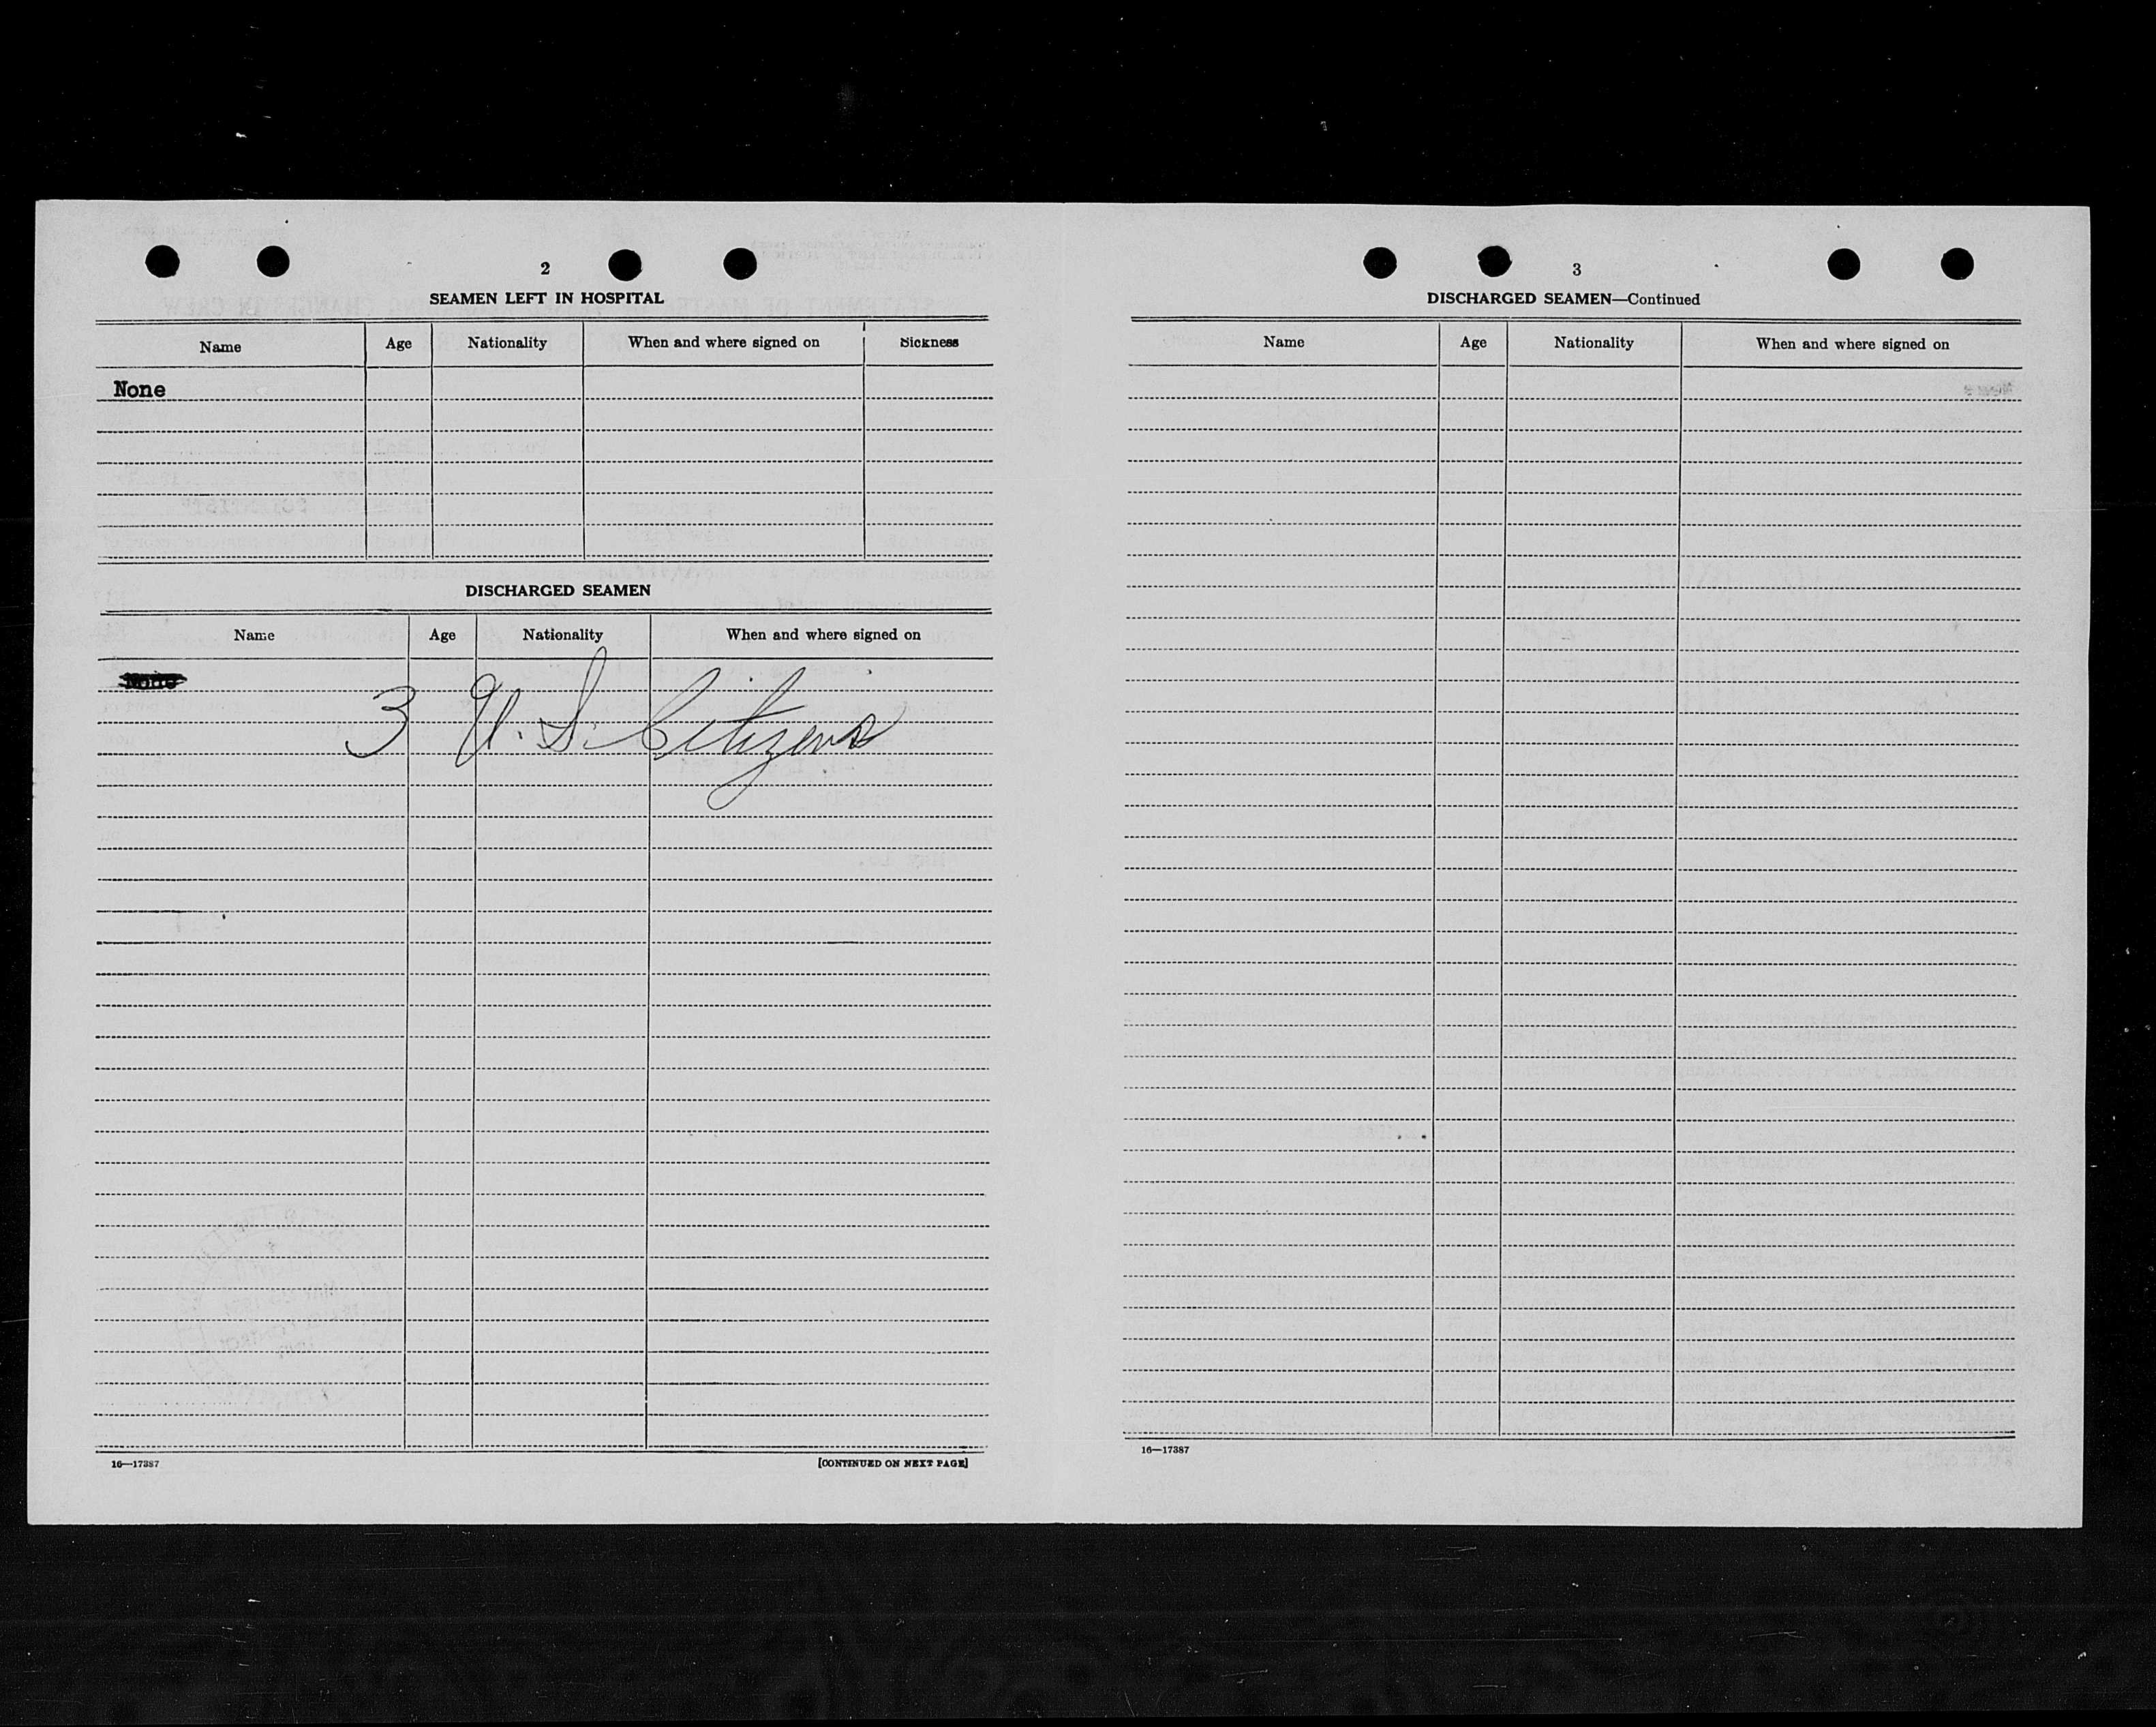 2
SEAMEN LEFT IN HOSPITAL
Name Age Nationality When and where signed on Sickness
None
DISCHARGED SEAMEN
Name Age Nationality When and where signed on
None
3 U. S. Citizens
16—17387 [CONTINUED ON NEXT PAGE]
3
DISCHARGED SEAMEN—Continued
Name Age Nationality When and where signed on
16—17387